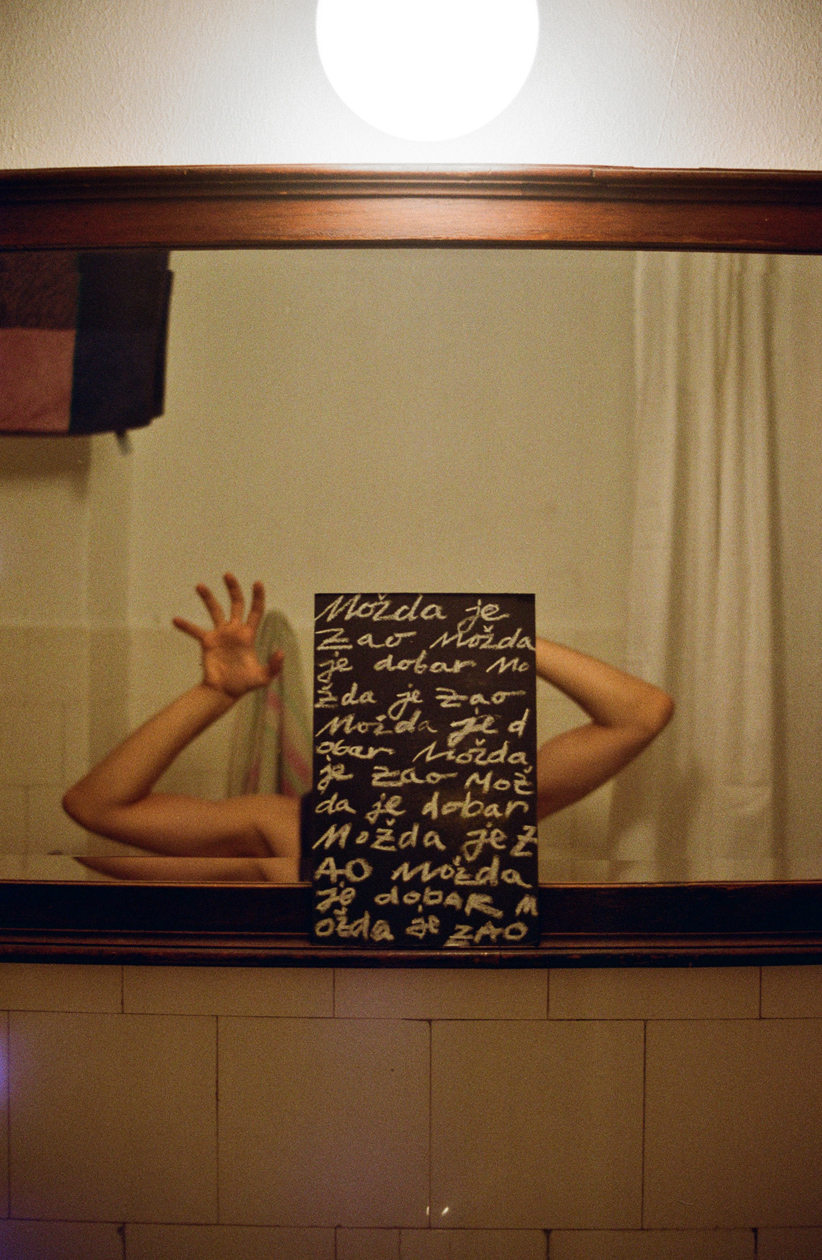 Možda je
Zao Možda
je dobar Mo
žda je zao
Možda je d
obar Možda
je zao Mož
da je dobar
Možda je Z
AO Možda
je dobAR M
ožda je ZAO